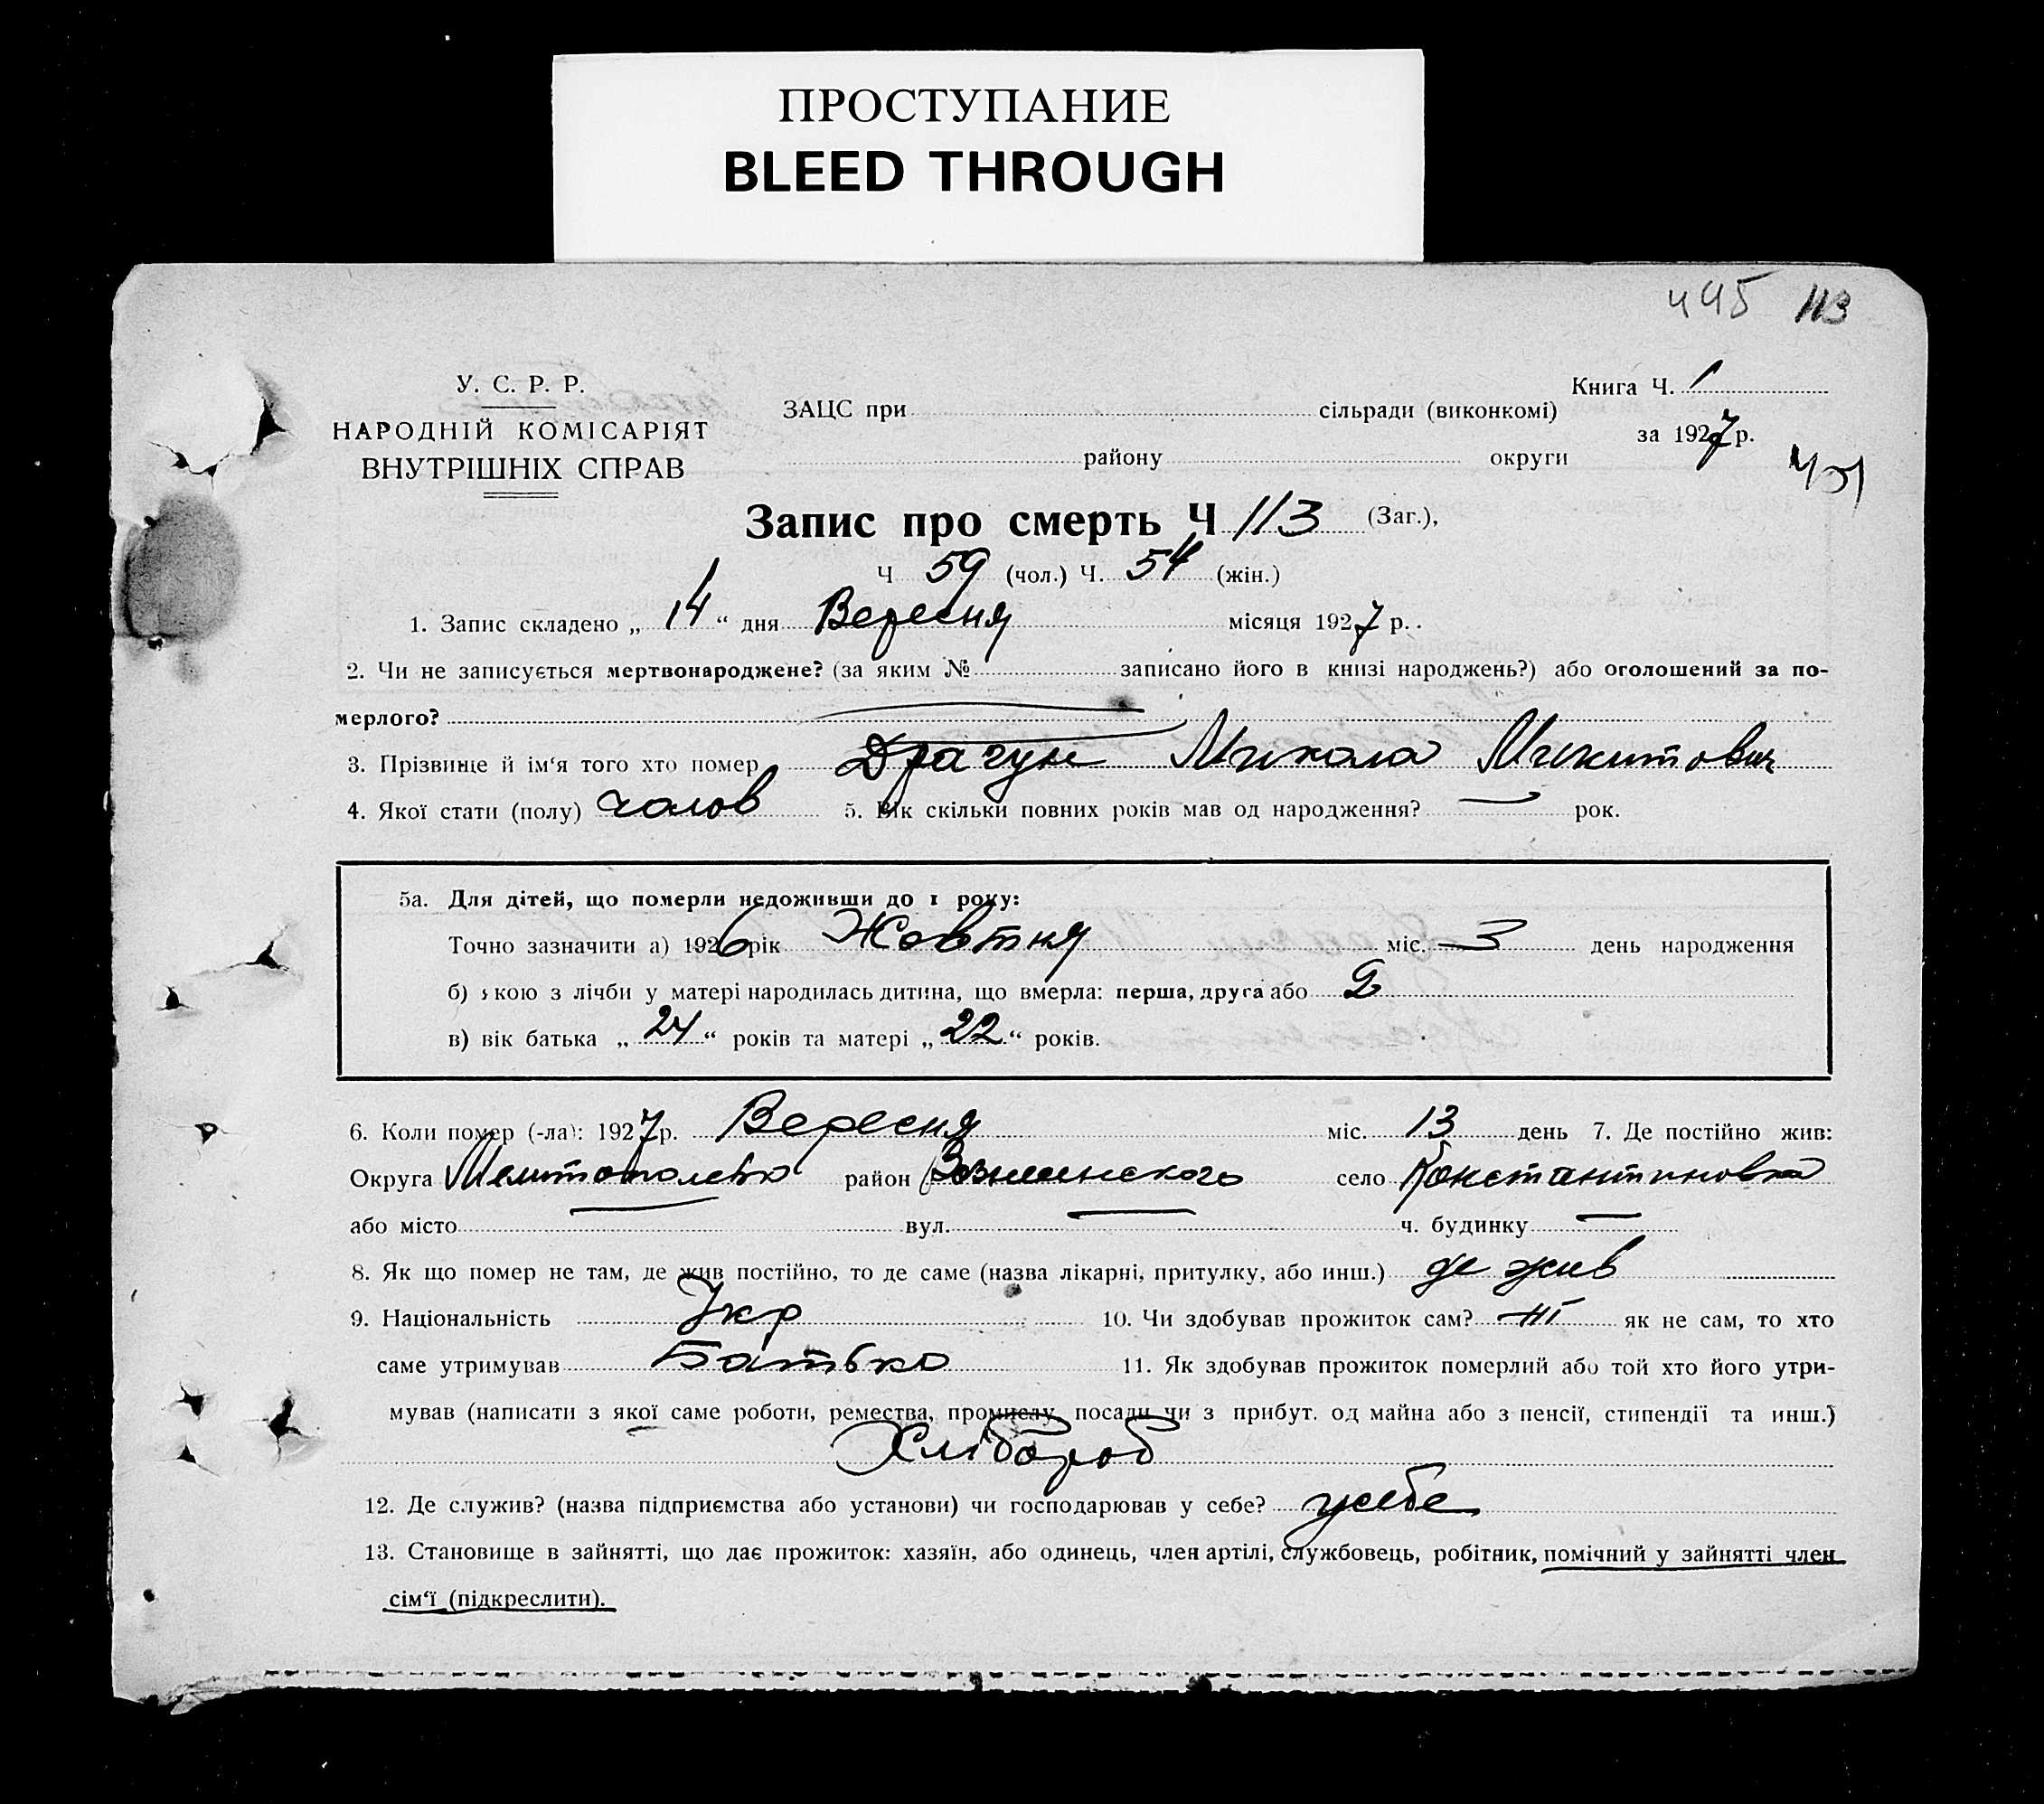 ПРОСТУПАНИЕ
BLEED THROUGH
445 113
У. С. Р. Р.
НАРОДНІЙ КОМІСАРІЯТ
ВНУТРІШНІХ СПРАВ
Книга Ч. 1
ЗАЦС при сільради (виконкомі)
за 1927 р.
району округи
Запис про смерть Ч 113 (Заг.),
Ч 59 (чол.) Ч. 54 (жін.)
1. Запис складено „ 14 “ дня Вересня місяця 1927 р.
2. Чи не записується мертвонароджене? (за яким № записано його в книзі народжень?) або оголошений за по-
мерлого?
3. Прізвище й ім‘я того хто помер Драгун Микола Микитович
4. Якої стати (полу) чолов 5. Вік скільки повних років мав од народження? — рок.
5а. Для дітей, що померли недоживши до 1 року:
Точно зазначити а) 1926 рік Жовтня міс. 3 день народження
б) якою з лічби у матері народилась дитина, що вмерла: перша, друга або 2
в) вік батька „ 24 “ років та матері „ 22 “ років.
6. Коли помер (-ла): 1927 р. Вересня міс. 13 день 7. Де постійно жив:
Округа район село Константиновка
або місто — вул. — ч. будинку —
8. Як що помер не там, де жив постійно, то де саме (назва лікарні, притулку, або инш.) де жив
9. Національність Укр 10. Чи здобував прожиток сам? ні як не сам, то хто
саме утримував Батько 11. Як здобував прожиток померлий або той хто його утри-
мував (написати з якої саме роботи, ремества, промислу, посади чи з прибут. од майна або з пенсії, стипендії та инш.)
Хлібороб
12. Де служив? (назва підприємства або установи) чи господарював у себе? усебе
13. Становище в зайнятті, що дає прожиток: хазяїн, або одинець, член артілі, службовець, робітник, помічний у зайнятті член
сім‘ї (підкреслити).